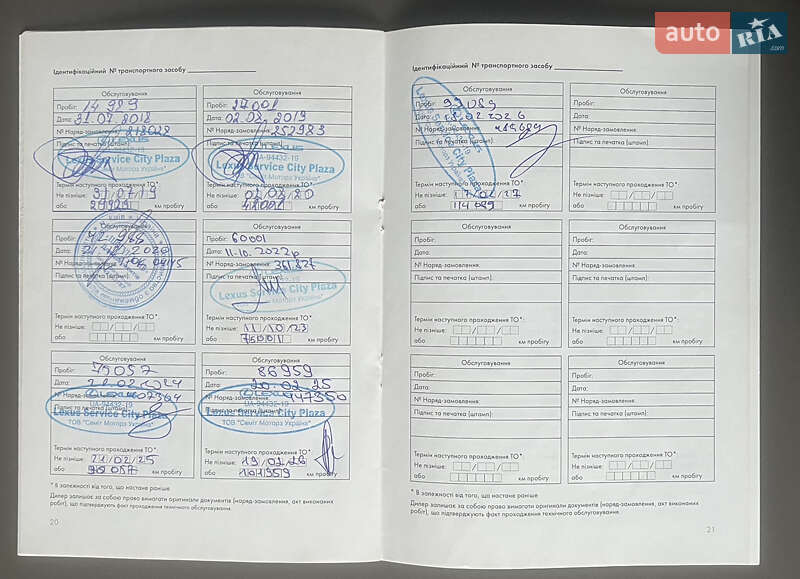 auto RIA.com
Ідентифікаційний № транспортного засобу
Обслуговування
Пробіг: 14 989
Дата: 31.07.2018
№ Наряд-замовлення: 218028
Підпис та печатка (штамп):
Lexus Service City Plaza
ТОВ "Саміт Моторз Україна"
Термін наступного проходження ТО*
Не пізніше: 31/07/19
або 29989 км пробігу
Обслуговування
Пробіг: 27001
Дата: 02.08.2019
№ Наряд-замовлення: 252983
Підпис та печатка (штамп):
LEXUS
UA-94432-19
Lexus Service City Plaza
ТОВ "Саміт Моторз Україна"
Термін наступного проходження ТО*
Не пізніше: 02/08/20
або 42001 км пробігу
Обслуговування
Пробіг:
Дата:
№ Наряд-замовлення:
Підпис та печатка (штамп):
Термін наступного проходження ТО*
Не пізніше:
або км пробігу
Обслуговування
Пробіг: 60001
Дата: 11.10.2022
№ Наряд-замовлення: 361827
Підпис та печатка (штамп):
Lexus Service City Plaza
ТОВ "Саміт Моторз Україна"
Термін наступного проходження ТО*
Не пізніше: 11/10/23
або 75001 км пробігу
Обслуговування
Пробіг: 75057
Дата: 22.02.2024
№ Наряд-замовлення: 407364
Підпис та печатка (штамп):
UA-94432-19
Lexus Service City Plaza
ТОВ "Саміт Моторз Україна"
Термін наступного проходження ТО*
Не пізніше: 21/02/25
або 90057 км пробігу
Обслуговування
Пробіг: 86959
Дата: 20.02.25
№ Наряд-замовлення: 447350
Підпис та печатка (штамп):
UA-94432-19
Lexus Service City Plaza
ТОВ "Саміт Моторз Україна"
Термін наступного проходження ТО*
Не пізніше: 19/02/26
або 101959 км пробігу
* В залежності від того, що настане раніше
Дилер залишає за собою право вимагати оригінали документів (наряд-замовлення, акт виконаних
робіт), що підтверджують факт проходження технічного обслуговування.
20
Ідентифікаційний № транспортного засобу
Обслуговування
Пробіг: 99089
Дата: 18.02.2026
№ Наряд-замовлення: 489689
Підпис та печатка (штамп):
Термін наступного проходження ТО*
Не пізніше: 17/02/27
або 114089 км пробігу
Обслуговування
Пробіг:
Дата:
№ Наряд-замовлення:
Підпис та печатка (штамп):
Термін наступного проходження ТО*
Не пізніше:
або км пробігу
Обслуговування
Пробіг:
Дата:
№ Наряд-замовлення:
Підпис та печатка (штамп):
Термін наступного проходження ТО*
Не пізніше:
або км пробігу
Обслуговування
Пробіг:
Дата:
№ Наряд-замовлення:
Підпис та печатка (штамп):
Термін наступного проходження ТО*
Не пізніше:
або км пробігу
Обслуговування
Пробіг:
Дата:
№ Наряд-замовлення:
Підпис та печатка (штамп):
Термін наступного проходження ТО*
Не пізніше:
або км пробігу
Обслуговування
Пробіг:
Дата:
№ Наряд-замовлення:
Підпис та печатка (штамп):
Термін наступного проходження ТО*
Не пізніше:
або км пробігу
* В залежності від того, що настане раніше
Дилер залишає за собою право вимагати оригінали документів (наряд-замовлення, акт виконаних
робіт), що підтверджують факт проходження технічного обслуговування.
21